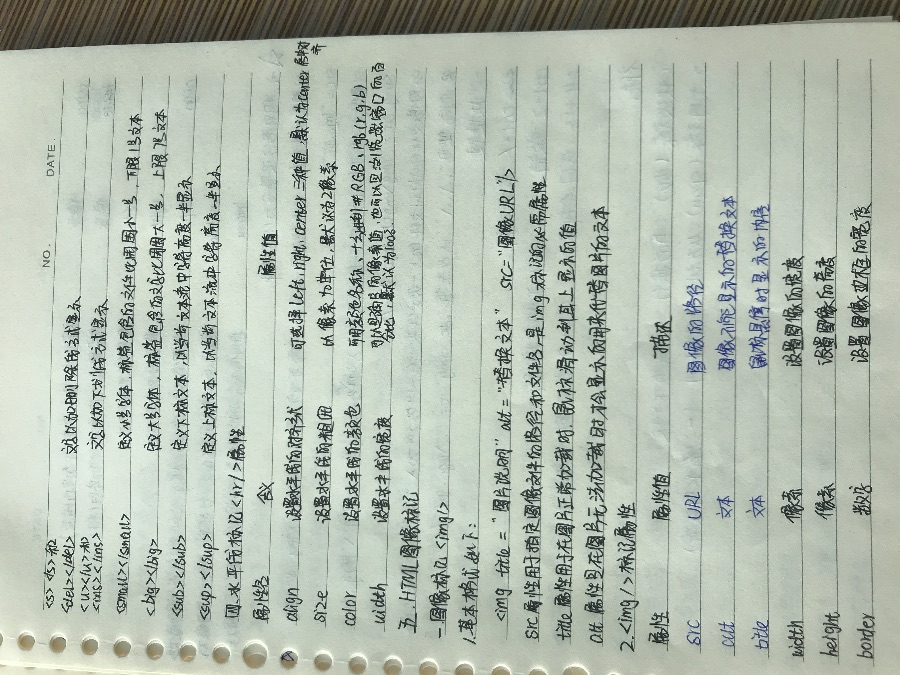 NO. DATE
<s></s>和 文字以加删除线方式显示
<del></del>
<u></u>和 文字以加下划线方式显示
<ins></ins>
<small></small> 定义小号字体，标签包含的文件比周围小一号，下限1号文本
<big></big> 定义大号字体，标签包含的文字比周围大一号，上限7号文本
<sub></sub> 定义下标文本，以当前文本流中字符高度一半显示
<sup></sup> 定义上标文本，以当前文本流中字符高度一半显示
四.水平线标记<hr/>属性
属性名 含义 属性值
align 设置水平线的对齐方式 可选择left、right、center三种值，默认为center居中对齐
size 设置水平线的粗细 以像素为单位，默认为2像素
color 设置水平线的颜色 可用颜色名称、十六进制#RGB、rgb(r,g,b)
width 设置水平线的宽度 可以是确定的像素值，也可以是浏览器窗口的百分比，默认为100%
五.HTML图像标记
一.图像标记<img/>
1.基本格式如下：
<img title="图片说明" alt="替换文本" src="图像URL"/>
src属性用于指定图像文件的路径和文件名，是img标记的必需属性
title属性用于在图片正常加载时，鼠标滑动到其上显示的值
alt属性是在图片无法加载时才会显示的用来代替图片的文本
2.<img/>标记属性
属性 属性值 描述
src URL 图像的路径
alt 文本 图像不能显示的替换文本
title 文本 鼠标悬停时显示的内容
width 像素 设置图像的宽度
height 像素 设置图像的高度
border 数字 设置图像边框的宽度